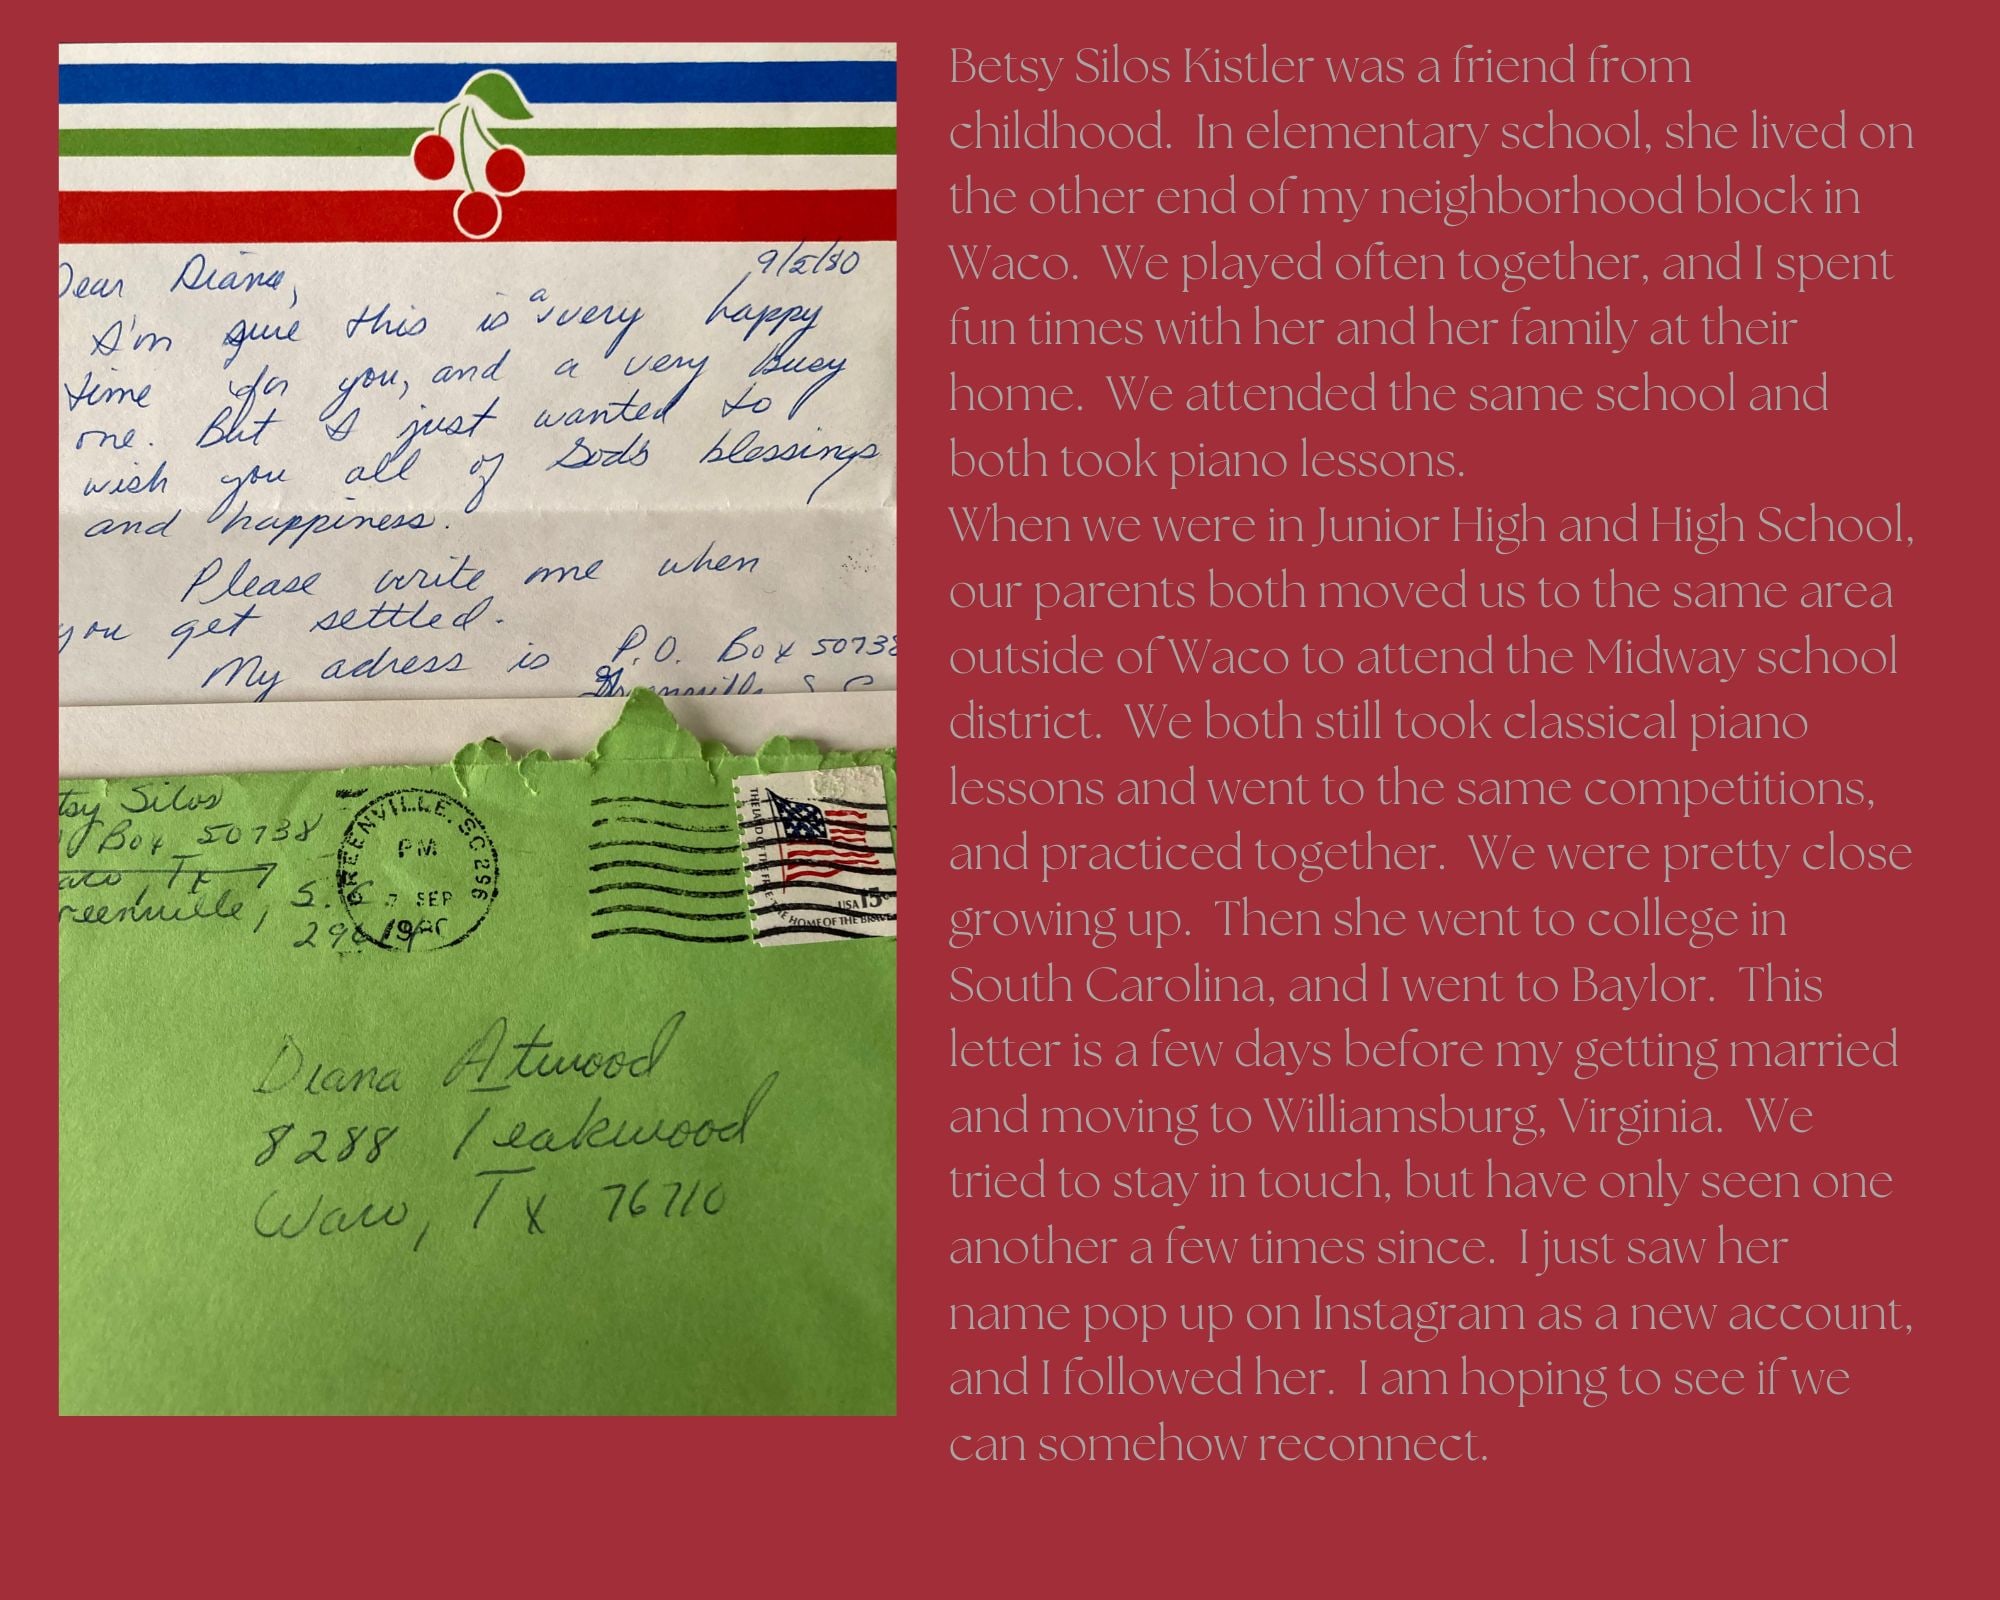 Dear Diana,
9/5/80
I'm sure this is a very happy
time for you, and a very busy
one. But I just wanted to
wish you all of God's blessings
and happiness.
Please write me when
you get settled.
My adress is P.O. Box 50738
Greenville S.C.
tsy Silos
Box 50738
aco Tx
reenville, S.C.
296
GREENVILLE, SC 296
PM
SEP
1980
THE LAND OF THE FREE THE HOME OF THE BRAVE
USA 15c
Diana Atwood
8288 Teakwood
Waco, Tx 76710
Betsy Silos Kistler was a friend from
childhood. In elementary school, she lived on
the other end of my neighborhood block in
Waco. We played often together, and I spent
fun times with her and her family at their
home. We attended the same school and
both took piano lessons.
When we were in Junior High and High School,
our parents both moved us to the same area
outside of Waco to attend the Midway school
district. We both still took classical piano
lessons and went to the same competitions,
and practiced together. We were pretty close
growing up. Then she went to college in
South Carolina, and I went to Baylor. This
letter is a few days before my getting married
and moving to Williamsburg, Virginia. We
tried to stay in touch, but have only seen one
another a few times since. I just saw her
name pop up on Instagram as a new account,
and I followed her. I am hoping to see if we
can somehow reconnect.